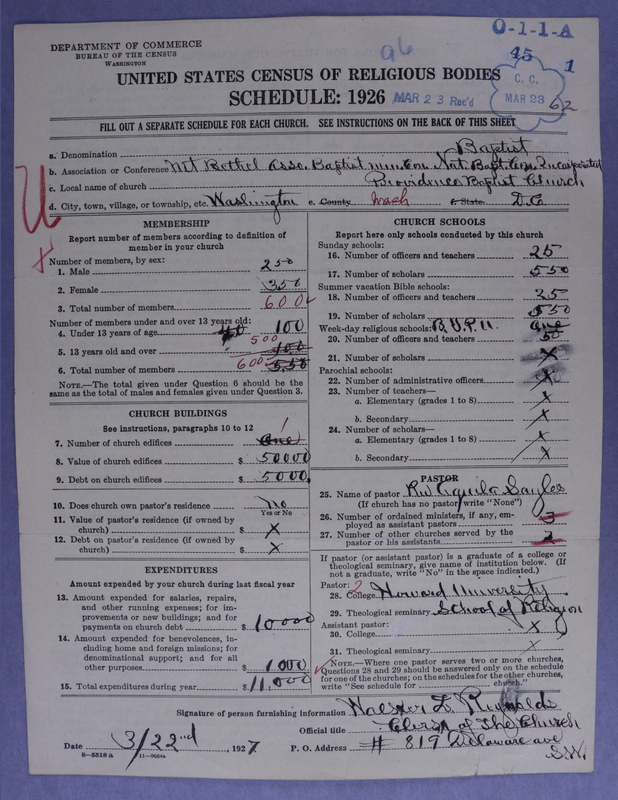 DEPARTMENT OF COMMERCE
BUREAU OF THE CENSUS
WASHINGTON
96
0-1-1-A
45
1
UNITED STATES CENSUS OF RELIGIOUS BODIES
SCHEDULE: 1926
MAR 23 Rec'd
C. C.
MAR 23
62
FILL OUT A SEPARATE SCHEDULE FOR EACH CHURCH. SEE INSTRUCTIONS ON THE BACK OF THIS SHEET
a. Denomination Baptist
b. Association or Conference Mt Bethel Asso. Baptist Con. Nat. Bapt. Con. Incorporated
c. Local name of church Providence Baptist Church
d. City, town, village, or township, etc. Washington e. County Wash f. State D.C.
MEMBERSHIP
Report number of members according to definition of
member in your church
Number of members, by sex:
1. Male 250
2. Female 350
3. Total number of members 600
Number of members under and over 13 years old:
4. Under 13 years of age 40 100
500
5. 13 years old and over 400
6. Total number of members 600 550
NOTE.—The total given under Question 6 should be
same as the total of males and females given under Question 3.
CHURCH BUILDINGS
See instructions, paragraphs 10 to 12
1
7. Number of church edifices One
8. Value of church edifices $ 50000
9. Debt on church edifices $ 5000
10. Does church own pastor's residence No
Yes or No
11. Value of pastor's residence (if owned by
church) $ X
12. Debt on pastor's residence (if owned by
church) $ X
EXPENDITURES
Amount expended by your church during last fiscal year
13. Amount expended for salaries, repairs,
and other running expenses; for im-
provements or new buildings; and for
payments on church debt $ 10000
14. Amount expended for benevolences, in-
cluding home and foreign missions; for
denominational support; and for all
other purposes $ 1000
15. Total expenditures during year $ 11,000
CHURCH SCHOOLS
Report here only schools conducted by this church
Sunday schools:
16. Number of officers and teachers 25
17. Number of scholars 550
Summer vacation Bible schools:
18. Number of officers and teachers 25
19. Number of scholars 550
Week-day religious schools: B.Y.P.U. One
20. Number of officers and teachers 50
21. Number of scholars X
Parochial schools:
22. Number of administrative officers X
23. Number of teachers—
a. Elementary (grades 1 to 8) X
b. Secondary X
24. Number of scholars—
a. Elementary (grades 1 to 8) X
b. Secondary X
PASTOR
25. Name of pastor Rev Aquila Sayles
(If church has no pastor, write "None")
26. Number of ordained ministers, if any, em-
ployed as assistant pastors 3
27. Number of other churches served by the
pastor or his assistants
If pastor (or assistant pastor) is a graduate of a college or
theological seminary, give name of institution below. (If
not a graduate, write "No" in the space indicated.)
Pastor: ?
28. College Howard University
29. Theological seminary School of Religion
Assistant pastor:
30. College X
31. Theological seminary X
NOTE.—Where one pastor serves two or more churches,
Questions 28 and 29 should be answered only on the schedule
for one of the churches; on the schedules for the other churches,
write "See schedule for church."
Signature of person furnishing information Walter L. Reynolds
Official title Clerk of The Church
Date 3/22nd, 1927 P. O. Address # 819 Delaware ave
S.W.
8—5518 a 11—9054a